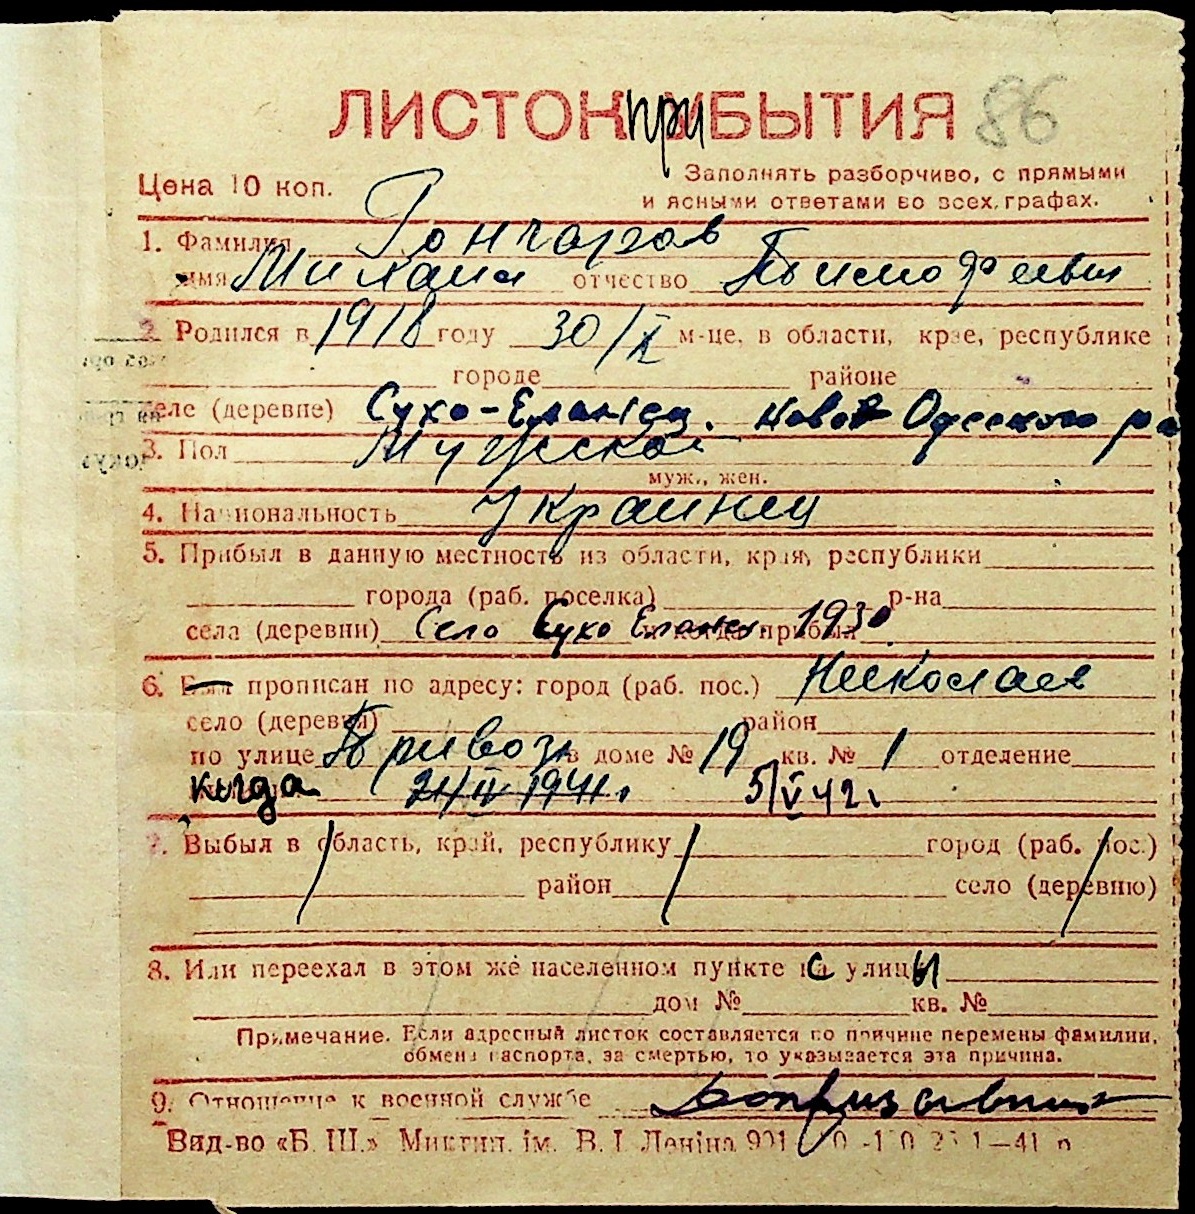 ЛИСТОК прибытия 86
Цена 10 коп. Заполнять разборчиво, с прямыми
и ясными ответами во всех графах.
1. Фамилия Гончаров
имя Михаил отчество Тимофеевич
2. Родился в 1918 году 30/X м-це, в области, крае, республике
городе районе
селе (деревне) Сухо-Еланец. Ново Одесского ра
3. Пол Мужской
муж., жен.
4. Национальность Украинец
5. Прибыл в данную местность из области, края, республики
города (раб. поселка) р-на
села (деревни) Село Сухо Еланец и когда прибыл 1930
6. Был прописан по адресу: город (раб. пос.) Николаев
село (деревня) район
по улице Привозн в доме № 19 кв. № 1 отделение
когда 21/IV 1941г. 5/V 42г.
7. Выбыл в область, край, республику город (раб. пос.)
район село (деревню)
8. Или переехал в этом же населенном пункте с улицы
дом № кв. №
Примечание. Если адресный листок составляется по причине перемены фамилии,
обмена паспорта, за смертью, то указывается эта причина.
9. Отношение к военной службе Допризывник
Вид-во «Б. Ш.» Миктип. ім. В. І. Леніна